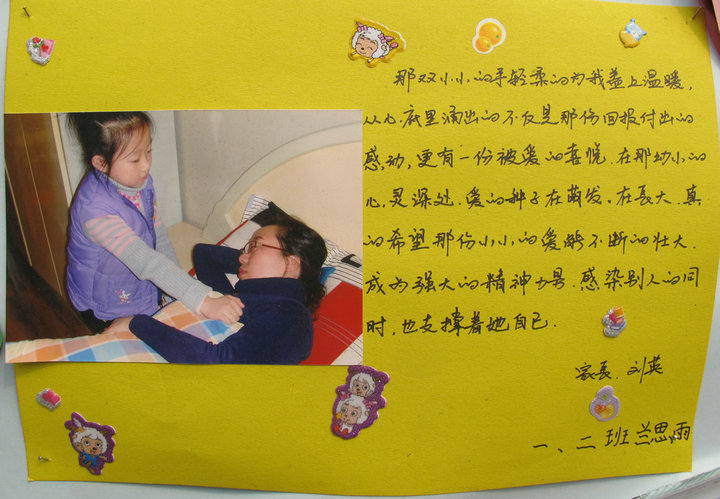 那双小小的手轻柔的为我盖上温暖,
从心底里涌出的不仅是那份回报付出的
感动,更有一份被爱的喜悦.在那幼小的
心灵深处.爱的种子在萌发。在长大.真
的希望那份小小的爱能不断的壮大.
成为强大的精神力量.感染别人的同
时,也支撑着她自己.
家长.刘英
一、二班 兰思雨